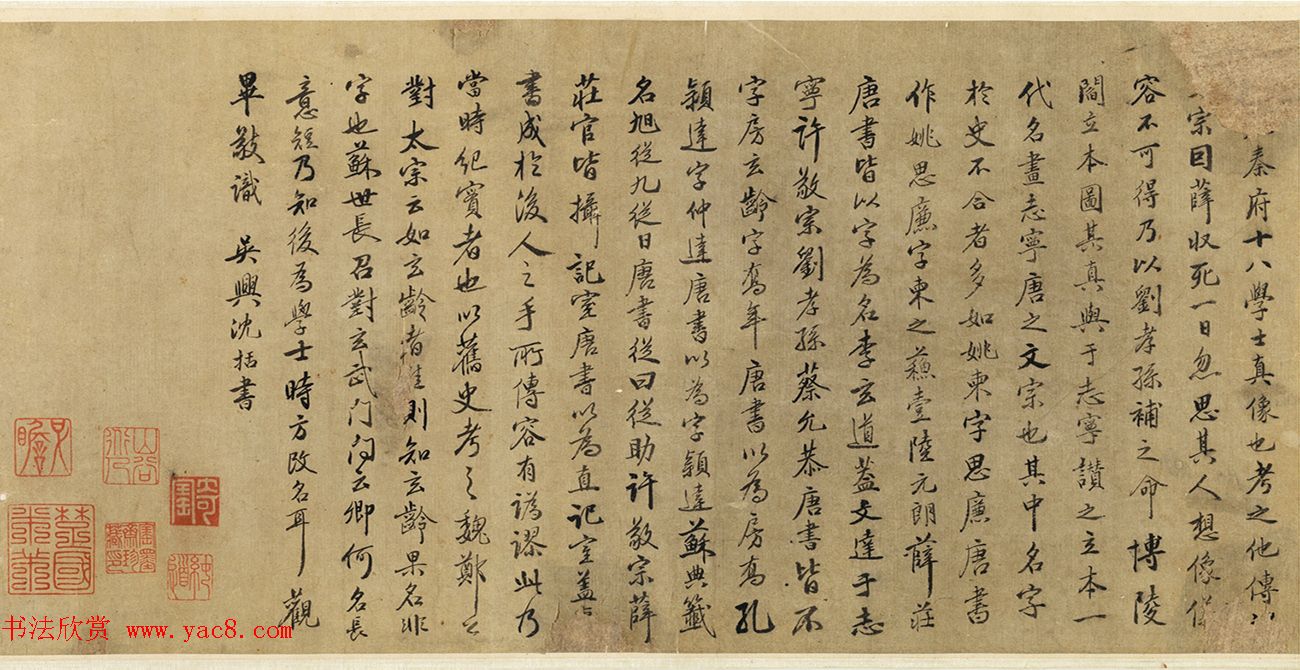 秦府十八學士真像也考之他傳
宗曰薛收死一日忽思其人想像儀
容不可得乃以劉孝孫補之命博陵
閻立本圖其真與于志寧讃之立本一
代名畫志寧唐之文宗也其中名字
於史不合者多如姚柬字思廉唐書
作姚思廉字柬之蘓壹陸元朗薛莊
唐書皆以字為名李玄道蓋文達于志
寧許敬宗劉孝孫蔡允恭唐書皆不
字房玄齡字喬年唐書以為房喬孔
穎達字仲達唐書以為字穎達蘇典籤
名旭從九從日唐書從曰從助許敬宗薛
莊官皆攝記室唐書以為直記室蓋
書成於後人之手所傳容有譌謬此乃
當時紀實者也以舊史考之魏鄭公
對太宗云如玄齡者惟則知玄齡果名非
字也蘇世長召對玄武門問云卿何名長
意短乃知後為學士時方改名耳觀
畢敬識 吳興沈括書
山谷
書法欣賞 www.yac8.com